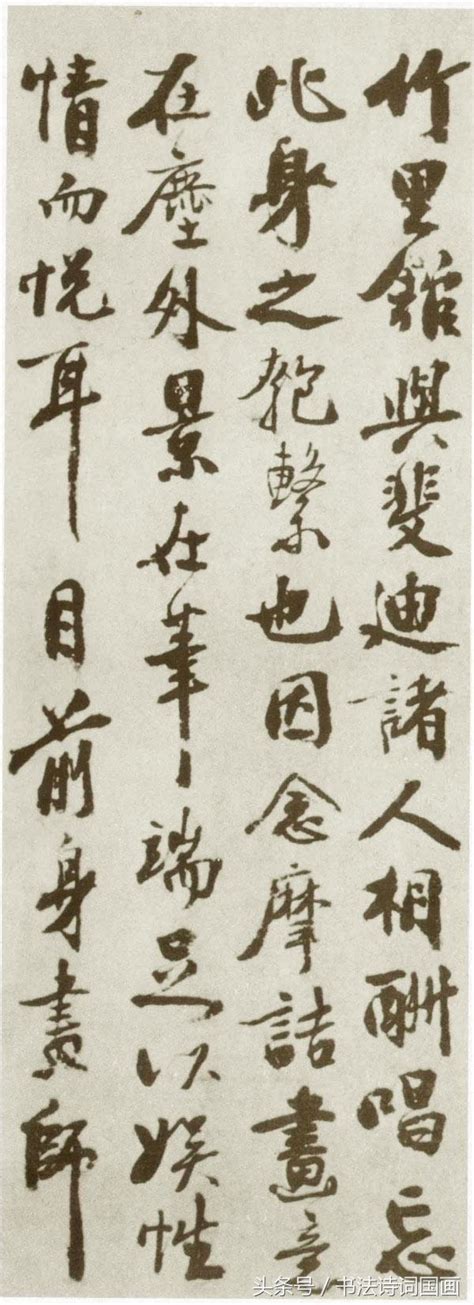 竹里館與斐迪諸人相酬唱忘
此身之匏繫也因念摩詰畫意
在塵外景在筆端足以娛性
情而悅耳目前身畫師
头条号 / 书法诗词国画